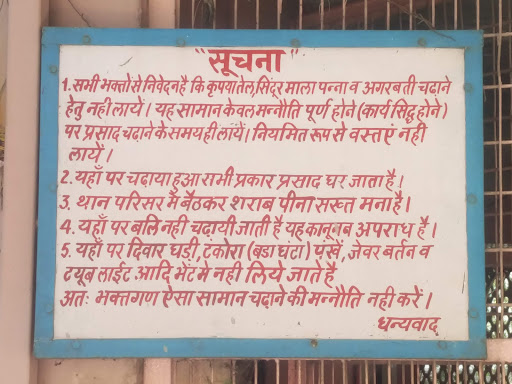 "सूचना"
1. सभी भक्तो से निवेदन है कि कृपया तेल, सिंदूर माला पन्ना व अगरबती चढाने
हेतु नही लाये। यह सामान केवल मन्नौति पूर्ण होने (कार्य सिद्ध होने)
पर प्रसाद चढाने के समय ही लायें। नियमित रूप से वस्तएं नही
लायें।
2. यहाँ पर चढाया हुआ सभी प्रकार प्रसाद घर जाता है।
3. थान परिसर मै बैठकर शराब पीना सख्त मना है।
4. यहाँ पर बलि नही चढायी जाती है यह कानूनन अपराध है।
5. यहाँ पर दिवार घड़ी, टंकोरा (बडा घंटा) पंखें, जेवर बर्तन व
टयूब लाईट आदि भेंट मे नही लिये जाते है
अतः भक्तगण ऐसा सामान चढाने की मन्नौति नही करें।
धन्यवाद